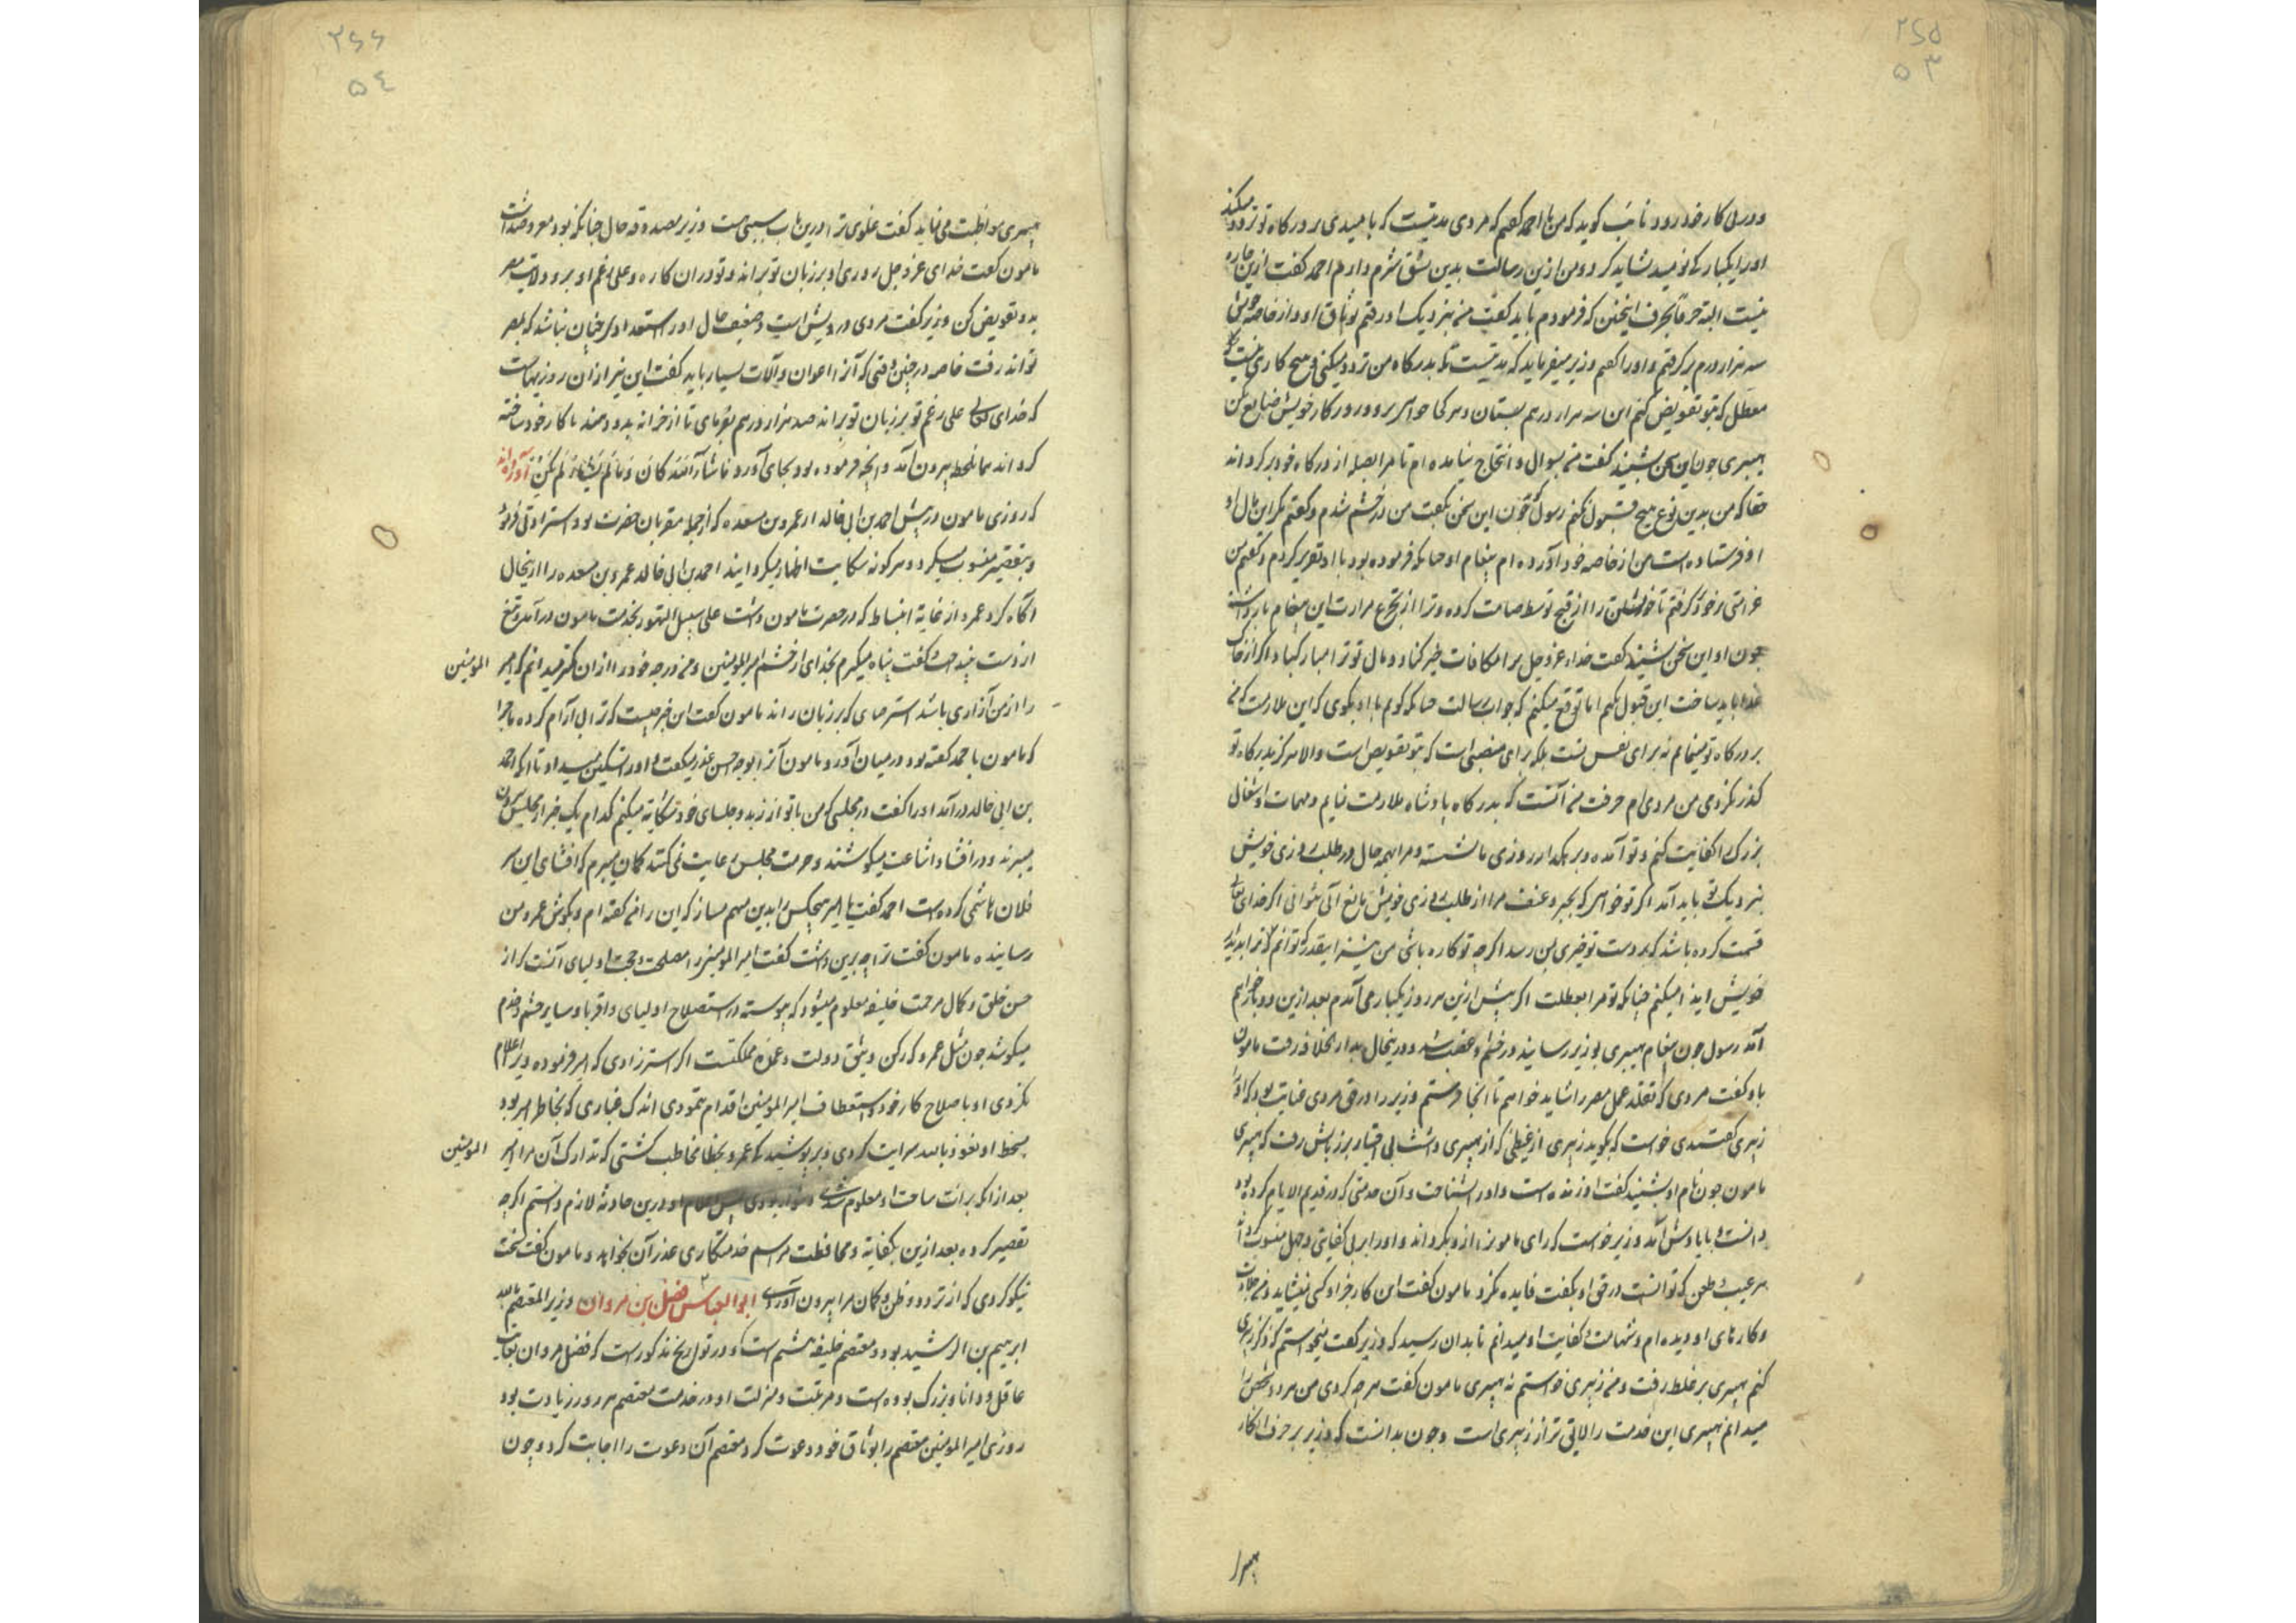 ۲۶۵
۵۳
و در پی کار خود رود نایب گوید که من با احمد گفتم که مردی مدتیست که بامیدی بر درگاه تو تردد میکند
او را یکبارگی نومید نشاید کرد و من ازین رسالت بدین نسق شرم دارم احمد گفت ازین چاره
نیست البته حرفا بحرف این سخن که فرمودم باید گفت من بنزدیک او رفتم بوثاق او و از خاصه خویش
سه هزار درم برگرفتم و او را گفتم وزیر میفرماید که مدتیست که بدرگاه من تردد میکنی و هیچ کاری نیست
معطل که بتو تفویض کنم این سه هزار درهم بستان و هر کجا خواهی برو و روزگار خویش ضایع مکن
هبیری چون این سخن بشنید گفت من بسوال و انتجاع نیامده ام تا مرا بصله از درگاه خود برگرداند
حقا که من بدین نوع هیچ قبول نکنم رسول گوید چون این سخن بگفت من در خشم شدم و گفتم مگر این مال او
او فرستاده است من از خاصه خود آورده ام پیغام او چنانکه فرموده بود با او تقریر کردم و گفتم من
غرامتی بر خود گرفتم تا خویشتن را از قبح توسط صیانت کرده و ترا از تجرع مرارت این پیغام باز داشته
چون او این سخن بشنید گفت خدای عز و جل ترا مکافات خیر کناد و مال تو ترا مبارک باد اگر از خاک
غذا باید ساخت این قبول نکنم اما توقع میکنم که جواب رسالت چنانکه گویم با او بگوی که این ملازمت که من
بر درگاه تو مینمایم نه برای نفس تست بلکه برای منصبی است که بتو تفویض است و الا هرگز بدرگاه تو
گذر نکردمی من مردی ام حرفت من آنست که بدرگاه پادشاه ملازمت نمایم و مهمات و اشغال
بزرگ را کفایت کنم و تو آمده و بر رهگذار روزی ما نشسته و مرا بهمه حال در طلب روزی خویش
بنزدیک تو باید آمد اگر تو خواهی که بجبر و عنف مرا از طلب روزی خویش مانع آئی نتوانی اگر خدای تعالی
قسمت کرده باشد که بر دست تو خیری بمن رسد اگر چه تو کاره باشی من نیز اینقدر توانم که ترا بدیدار
خویش ایذا میکنم چنانکه تو مرا بعطلت اگر پیش ازین هر روز یکبار می آمدم بعد ازین دو بار خواهم
آمد رسول چون پیغام هبیری بوزیر رسانید در خشم و غضب شد و در ینحال بدار الخلافه رفت مامون
با او گفت مردی که تقلد عمل مصر را شاید خواهم تا آنجا فرستم وزیر را در حق مردی عنایت بود که او را
زبیری گفتندی خواست که بگوید زبیری از غیظی که از هبیری داشت بی اختیار بر زبانش رفت که هبیری
مامون چون نام او بشنید گفت او زنده است و او را بشناخت و آن خدمتی که در قدیم الایام کرده بود
دانست و بایادش آمد وزیر خواست که رای مامون را ازو بگرداند و او را به بی کفایتی و جهل منسوب کرد
هر عیب و طعن که توانست در حق او بگفت فایده نکرد مامون گفت این کار جز او کسی نشاید و من جلادت
و کارهای او دیده ام و شهامت و کفایت او میدانم تا بدان رسید که وزیر گفت میخواستم که ذکر زبیری
کنم هبیری بر غلط رفت و من زبیری خواستم نه هبیری مامون گفت هر چه کردی من هر دو شخص را
میدانم هبیری این خدمت را لایق تر از زبیری است و چون بدانست که وزیر بر حرف انکار
هبیرا
۲۶۶
۵۴
هبیری مواظبت می نماید گفت غلوی ترا درین باب سببی هست وزیر بصدق حال چنانکه بود معروض داشت
مامون گفت خدای عز و جل روزی او بر زبان تو براند و تو در آن کاره و علی رغم او برو ولایت مصر
بدو تفویض کن وزیر گفت مردی درویش است و ضعیف حال او را استعداد آن چنان نباشد که بمصر
تواند رفت خاصه در چنین وقتی که آنرا اعوان و آلات بسیار باید گفت این نیز از ان روزیهاست
که خدای تعالی علی رغم تو بر زبان تو براند صد هزار درهم بفرمای تا از خزانه بدو دهند تا کار خود ساخته
گرداند همان لحظه بیرون آمد و آنچه فرموده بود بجای آورد ما شاء الله کان و ما لم یشا لم یکن آورده اند
که روزی مامون در پیش احمد بن ابی خالد از عمرو بن مسعده که از جمله مقربان حضرت بود استزادتی فرمود
و بتقصیر منسوب میکرد و هر گونه شکایت اظهار میگردانید احمد بن ابی خالد عمرو بن مسعده را از ینحال
آگاه کرد عمرو از غایة انبساط که در حضرت مامون داشت علی سبیل التهور بخدمت مامون در آمد و تیغ
از دست بینداخت و گفت پناه میگیرم بخدای از خشم امیر المومنین و من درجه خود را از ان کمتر میدانم که امیر المومنین
را از من آزاری باشد استزیاده ای که بر زبان راند مامون گفت این خبر چیست که ترا بی آرام کرده ماجرا
که مامون با احمد گفته بود در میان آورد و مامون آنرا بوجه احسن عذر میگفت و او را تسکین میداد تا آنکه احمد
بن ابی خالد در آمد او را گفت در مجلسی که من با تو از زید و جلسای خود شکایة میکنم کدام یک خبر از مجلس بیرون
میبرند و در افشا و اشاعت میکوشند و حرمت مجلس رعایت نمی کنند گمان میبرم که افشای این سر
فلان هاشمی کرده است احمد گفت یا امیر هیچکس را بدین متهم مساز که این را من گفته ام و بگوش عمرو من
رسانیده مامون گفت ترا چه برین داشت گفت امیر المومنین را مصلحت و حجت اولیای آنست که از
حسن خلق و کمال مرحمت خلیفه معلوم میشود که پیوسته در استصلاح اولیای و اقربا و سایر حشم و خدم
میکوشد چون مثل عمرو که رکن وثیق دولت و عمده مملکتست اگر استزادی که امیر فرموده ویرا اعلام
نکردی او با صلاح کار خود و استعطاف امیر المومنین اقدام ننمودی اندک غباری که بخاطر امیر بود
بسخط او نعوذ بالله سرایت کردی و بر پوشیدگی عمرو بخطا مخاطب گشتی که تدارک آن مر امیر المومنین
بعد از آنکه برائت ساحت او معلوم شدی دشوار بودی پس اعلام او درین حادثه لازم دانستم اگر چه
تقصیر کرده بعد ازین بکفایة و محافظت مراسم خدمتکاری عذر آن بخواهد و مامون گفت سخت
نیکو کردی که از تردد و ظن و گمان مرا بیرون آوردی ابو العباس فضل بن مروان وزیر المعتصم بالله
ابرهیم بن الرشید بود و معتصم خلیفه هشتم است و در تواریخ مذکور است که فضل مروان بغایت
عاقل و دانا و بزرگ بوده است و مرتبت و منزلت او در خدمت معتصم هر روز زیادت بود
روزی امیر المومنین معتصم را بوثاق خود دعوت کرد معتصم آن دعوت را اجابت کرد و چون